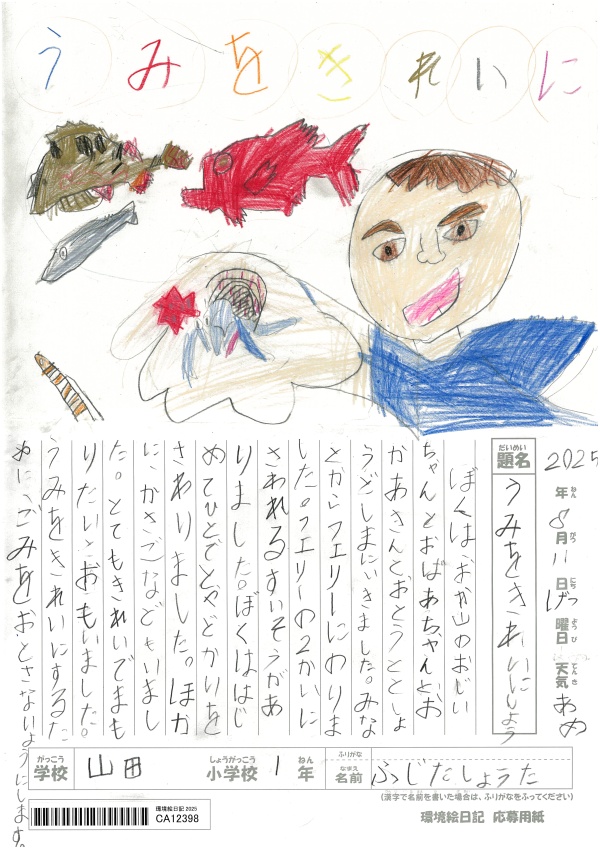 うみをきれいに
2025年ねん8月がつ11日にちげつ曜日ようび 天気てんきあめ
題名だいめい うみをきれいにしよう
ぼくは、おか山のおじい
ちゃんとおばあちゃんとお
かあさんとおとうととしょ
うどしまにいきました。みな
とからフェリーにのりま
した。フェリーの2かいに
さわれるすいそうがあ
りました。ぼくははじ
めてひとでとやどかりを
さわりました。ほか
に、かさごなどもいまし
た。とてもきれいでまも
りたいとおもいました。
うみをきれいにするた
めに、ごみをおとさないようにします。
がっこう しょうがっこう ねん ふりがな
学校 山田 小学校 1年 名前なまえ ふじたしょうた
(漢字で名前を書いた場合は、ふりがなをふってください)
環境絵日記 2025
CA12398
環境絵日記 応募用紙